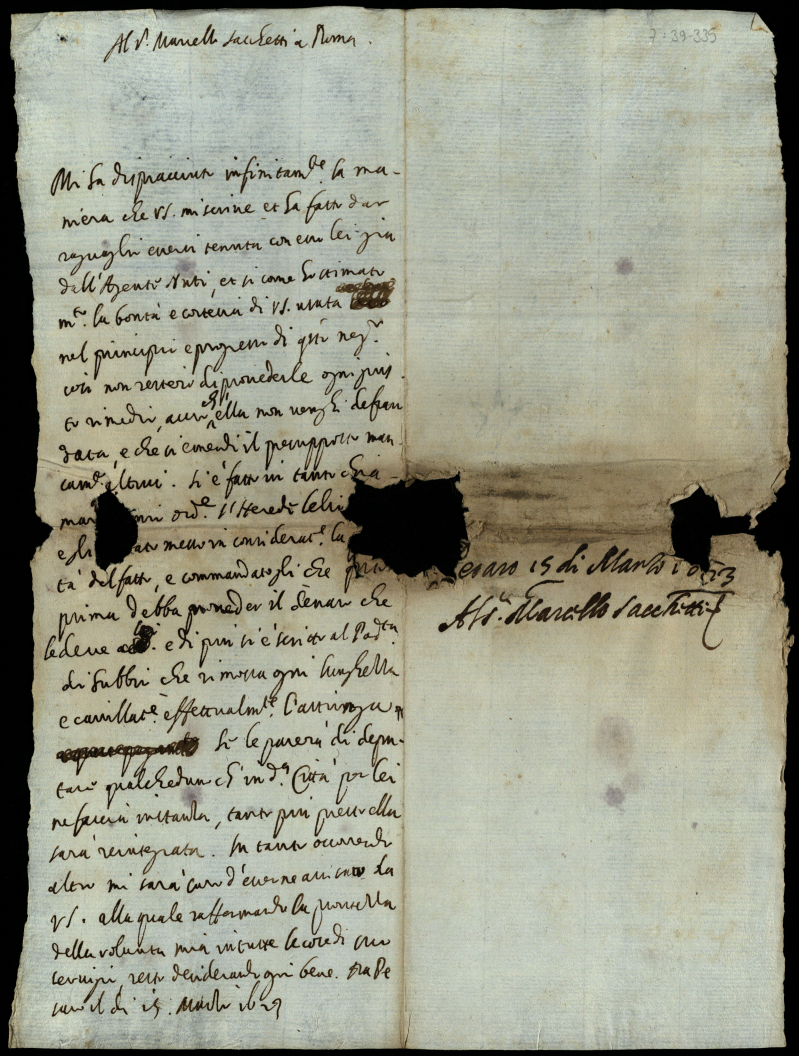 Al Sr. Marcello Sacchetti a Roma.
7-39-335
Mi ha dispiaciuto infinitamte. la ma-
niera che VS. mi scrive et ha fatto dar
ragguaglio essersi tenuta con esso lei già
dall'Agente Nuti, et si come ho stimato
mto. la bontà e cortesia di VS. usata
nel principio e progressi di qsto negro.
così non resterò di provederle ogni gius
to rimedio, acciò ch'ella non venghi defrau
data, e che si emendi il presupposto man
camto. altrui. Si è fatto in tanto chia
mar ord.e l'Herede
egli messo in consideratne. la
tà del fatto, e commandatogli che
prima debba proveder il denaro che
le deve e di più si è scritto al Podtà.
di Gubbio che rimossa ogni lunghezza
e cavillatne. effettualmte. l'astringa
Se le parerà di depu-
tare qualcheduno ch'in da. Città per lei
ne faccia instanza, tanto più presto ella
sarà reintegrata. In tanto occorrendo
altro mi sarà caro d'esserne avisato da
VS. alla quale raffermando la prontezza
della volontà mia in tutte le cose di suo
servigio, resto desiderandole ogni bene. Da Pe
saro il dì 15. Marzo 1623
Pesaro 15 di Marzo 1623
Al Sr. Marcello Sacchetti